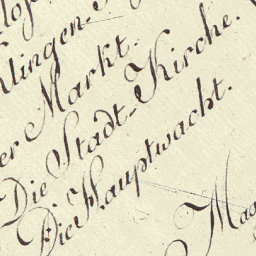 Klingen-
er Markt.
Die Stadt-Kirche.
Die Hauptwacht.
Mag